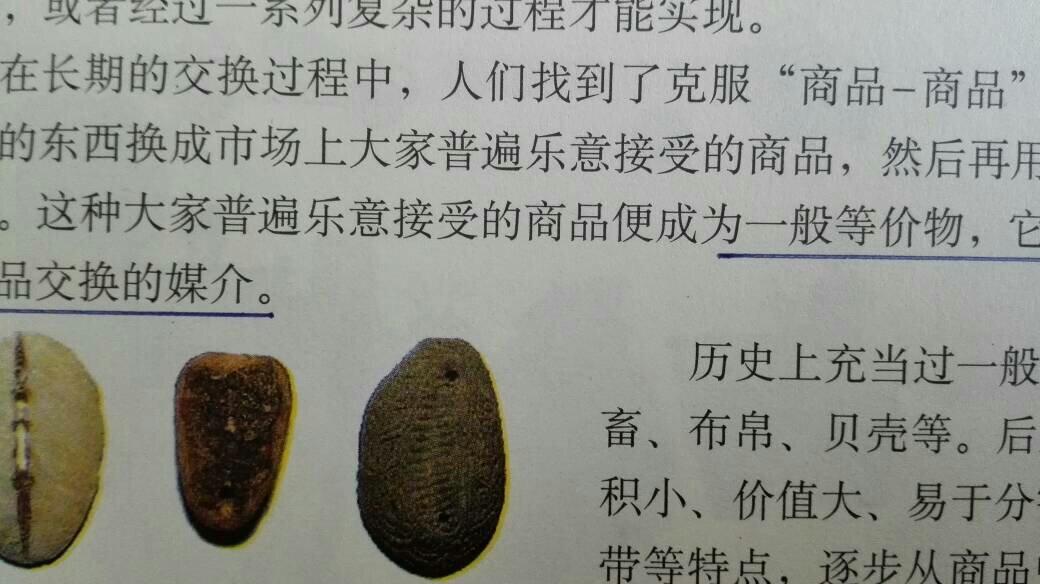 ，或者经过一系列复杂的过程才能实现。
在长期的交换过程中，人们找到了克服“商品–商品”
的东西换成市场上大家普遍乐意接受的商品，然后再用
。这种大家普遍乐意接受的商品便成为一般等价物，它
品交换的媒介。
历史上充当过一般
畜、布帛、贝壳等。后
积小、价值大、易于分
带等特点，逐步从商品